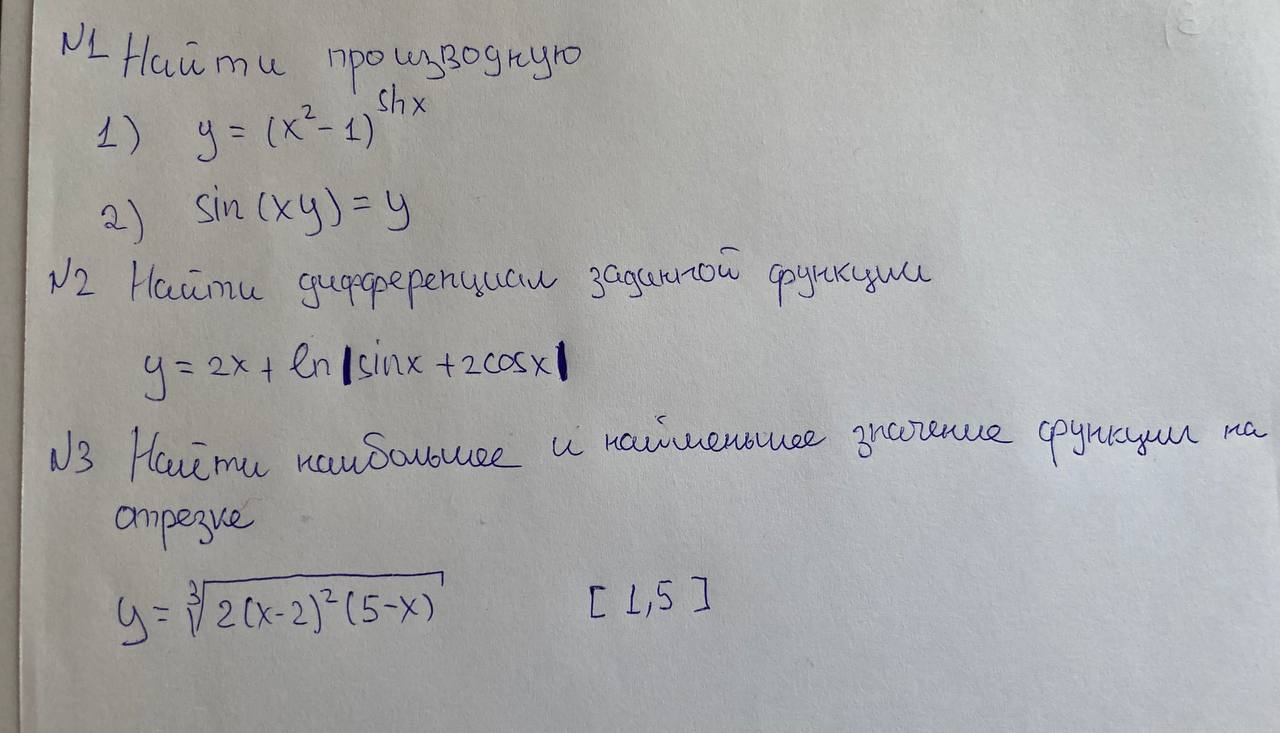 №1 Найти производную
1) y = (x² - 1)^shx
2) sin(xy) = y
№2 Найти дифференциал заданной функции
y = 2x + ln|sinx + 2cosx|
№3 Найти наибольшее и наименьшее значение функции на
отрезке
y = ∛(2(x-2)²(5-x)) [1,5]